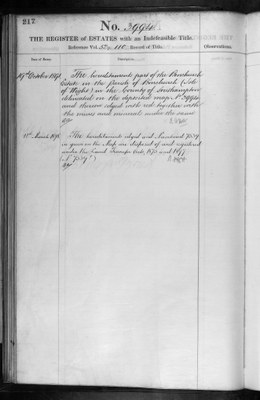 217
No. 3994
THE REGISTER of ESTATES with an Indefeasible Title.
Reference Vol. Record of Title.
Observations.
Date of Entry.
19th October 1871. The hereditaments part of the
Estate in the Parish of (Isle
of Wight) in the County of Southampton
delineated on the deposited map No. 3994
and thereon edged with red together with
the mines and minerals under the same
The hereditaments edged and numbered
in green on the Map are disposed of and registered
under the Land Transfer Acts, 1875 and 1897